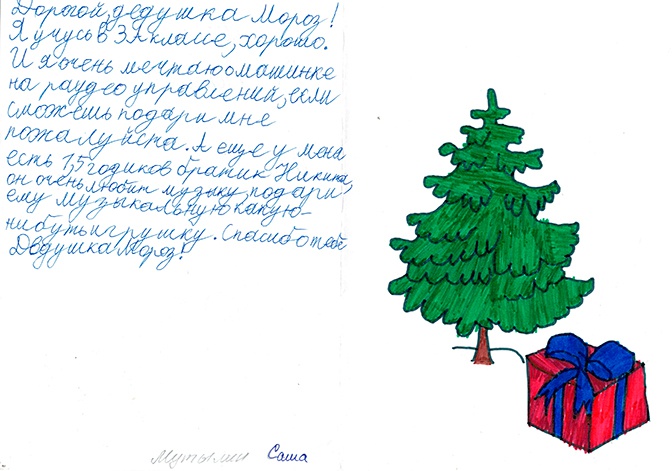 Дорогой, дедушка Мороз!
Я учусь в 3А классе, хорошо.
И я очень мечтаю о машинке
на раудео управлений, если
сможешь подари мне
пожалуйста. А еще у меня
есть 1,5 годиков братик Никита,
он очень любит музыку, подари,
ему музыкальную какую-
нибуть игрушку. Спасибо тебе
Дедушка Мороз!
Саша